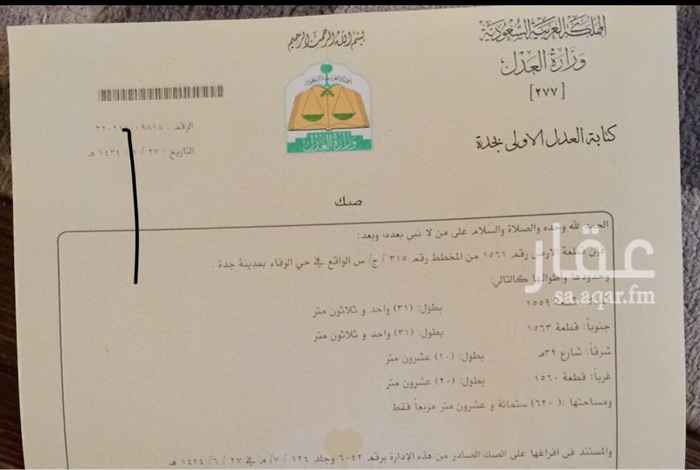 المملكة العربية السعودية
وزارة العدل
[٢٧٧]
كتابة العدل الاولى بجدة
بسم الله الرحمن الرحيم
وزارة العدل
الرقم
التاريخ ١٤٣٤ هـ
صك
الحمد لله وحده والصلاة والسلام على من لا نبي بعده، وبعد:
قطعة الأرض رقم ١٥٦١ من المخطط رقم ٣١٥ / ج/ س الواقع في حي الوفاء بمدينة جدة .
وحدودها وأطوالها كالتالي:
قطعة ١٥٥٩ بطول: (٣١) واحد و ثلاثون متر
جنوباً: قطعة ١٥٦٣ بطول: (٣١) واحد و ثلاثون متر
شرقاً: شارع ٣٩م بطول: (٢٠) عشرون متر
غرباً: قطعة ١٥٦٠ بطول: (٢٠) عشرون متر
ومساحتها :(٦٢٠) ستمائة و عشرون متر مربعاً فقط
والمستند في افراغها على الصك الصادر من هذه الإدارة برقم ٦٠٤٢ وجلد ١٢٤ /٧/ م في ٢٧ / ٦ / ١٤٢٤ هـ
عقار
sa.aqar.fm